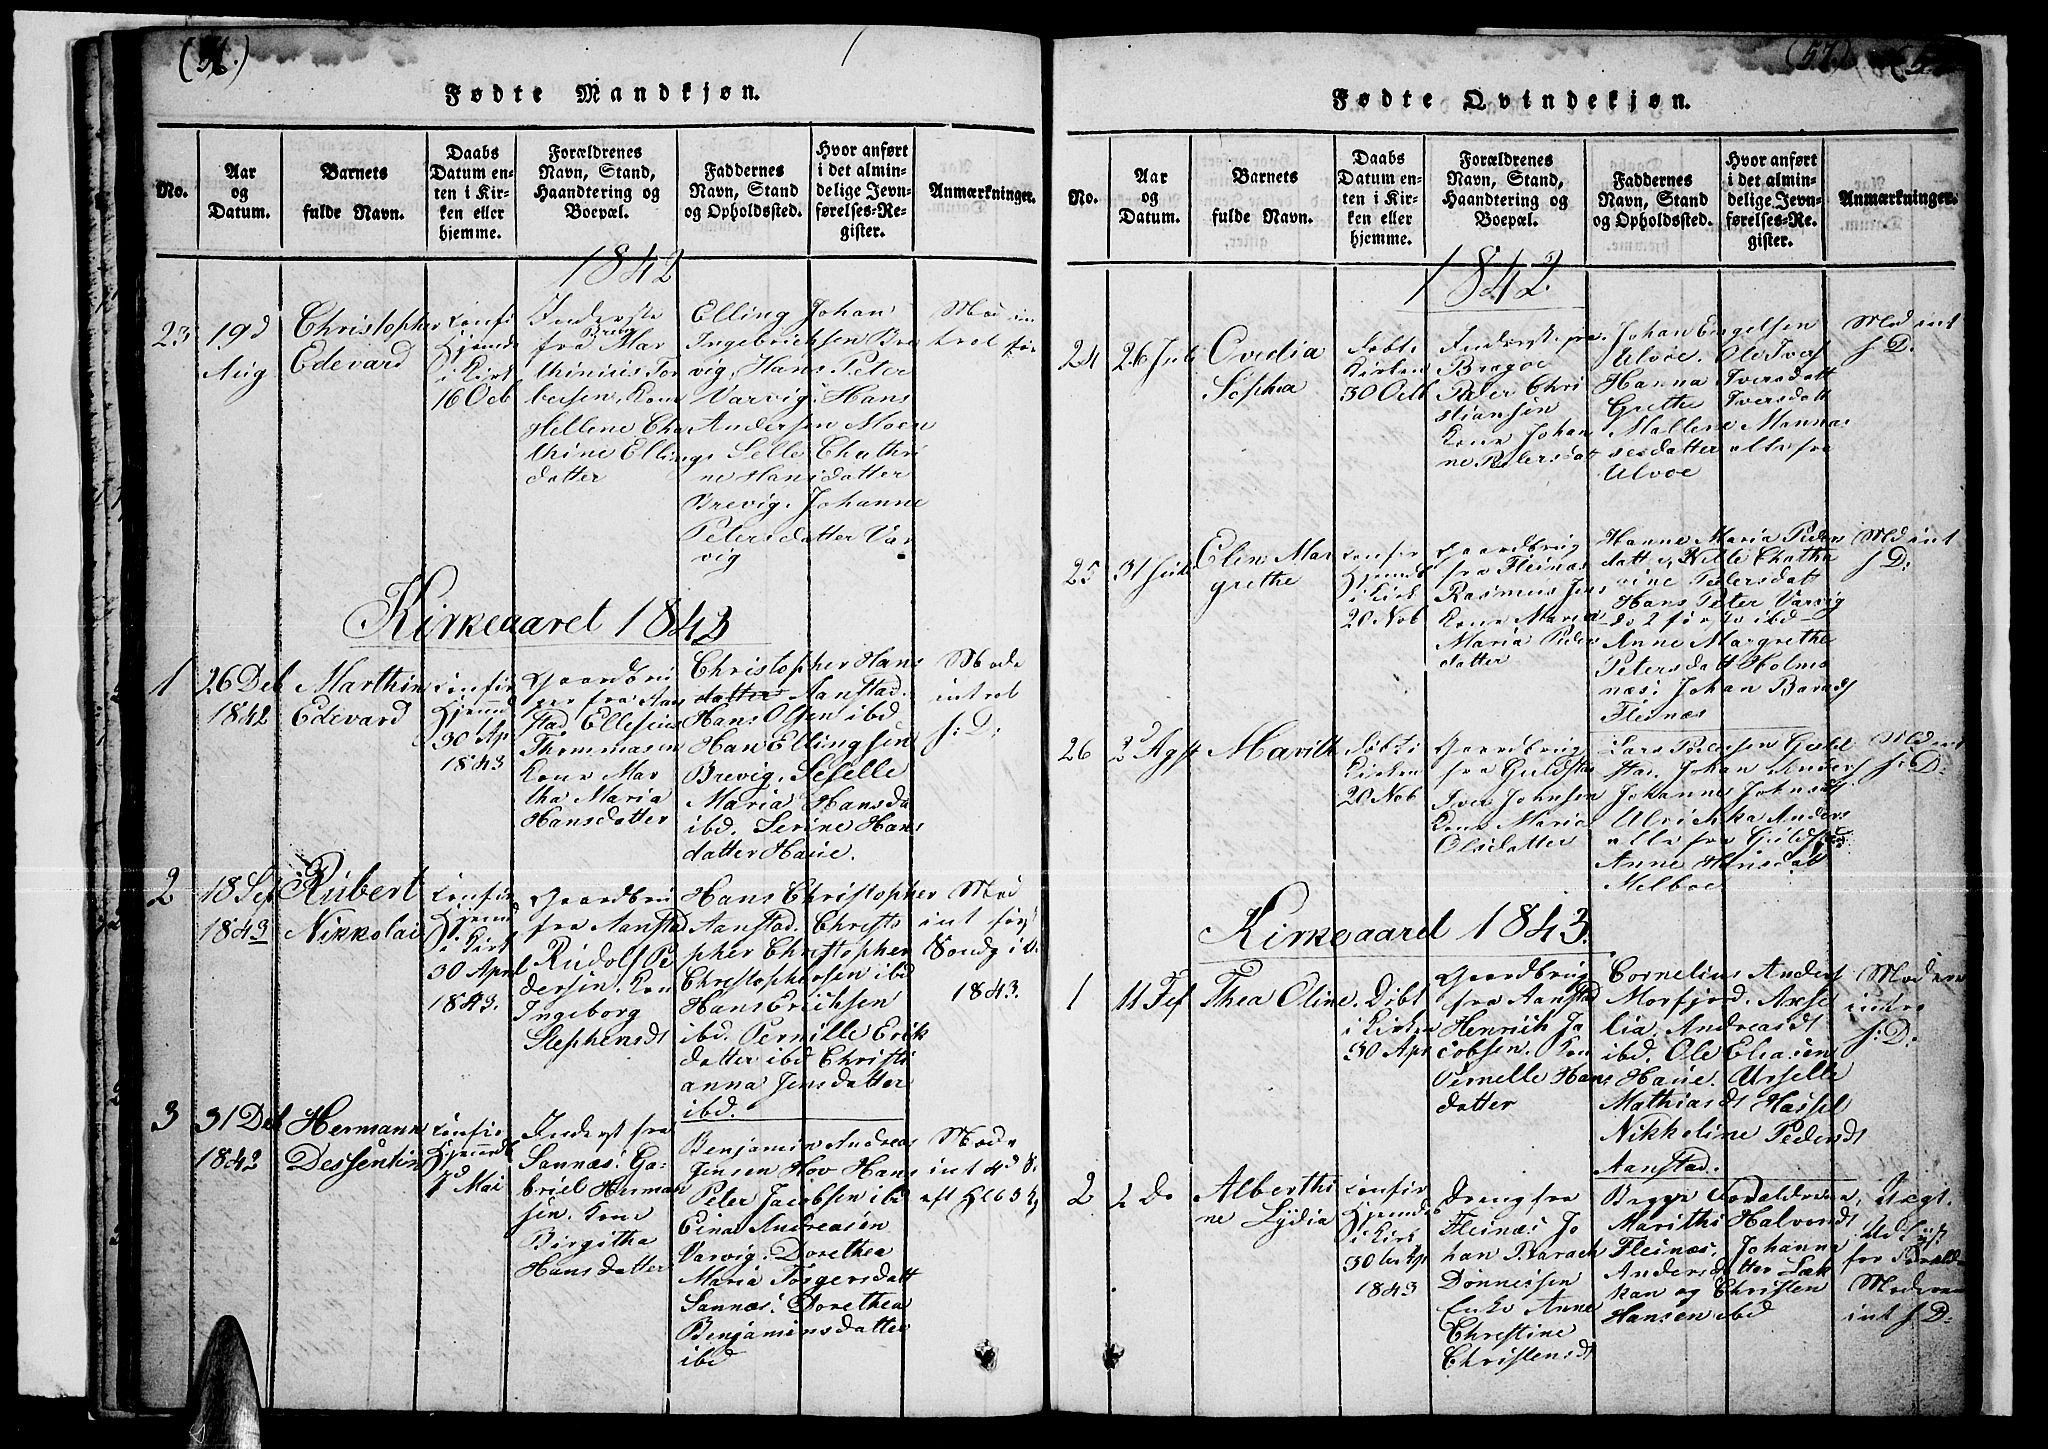 (56.)
Fødte Mandkjøn.
No.
Aar
og
Datum.
Barnets
fulde Navn.
Daabs
Datum en-
ten i Kir-
ken eller
hjemme.
Forældrenes
Navn, Stand,
Haandtering og
Boepæl.
Faddernes
Navn, Stand
og Opholdssted.
Hvor anført
i det almin-
delige Jevn-
førelses-Re-
gister.
Anmærkninger.
1842
23
19d
Aug
Christopher
Edevard
Confir
Hjemed
i Kirk
16 Octb
Inderste
Brevig
fra Mar
thinius Tor
bersen, Kone
Hellene Cha
thine Ellings
datter
Elling Johan
Ingebrichsen Bre
vig, Hans Peter
Varvig, Hans
Andersen Moen
Selle Chathri
ne Hansdatter
Brevig, Johanne
Petersdatter Var
vig
Kirkeaaret 1843
1
26 Deb
1842
Marthin
Edevard
Confir
Hjemed
30 Ap
1843
Gaardbru
ger fra Aan
stad Ellesius
Thommasen
Kone Mar
tha Maria
Hansdatter
Christopher Hans
datter Aanstad.
Hans Olsen ibd
Han Ellingsen
Brevig, Seselle
Maria Hansda
ibd. Serine Hans
datter Haue.
Mode
introl
f: D:
2
18 Sep
1843
Rubert
Nikkolai
Confir
Hjemed
i Kirk
30 Aprl
1843.
Gaardbru
fra Aanstad
Rudolf Pe
dersen, Kon
Ingeborg
Stephensdt
Hans Christopher
Aanstad. Christo
pher Christopher
Christophersen ibd
Hans Erichsen
ibd. Pernille Erik
datter ibd Christi
anna Jensdatter
ibd.
Mod
int førs
Søndg i
1843.
3
31 Deb
1842
Hermann
Dessentin
Confir
Hjemed
1d Mai
Inderst fra
Sannæs: Ga-
briel Herman
sen. Kone
Birgitha
Hansdatter
Benjamin Andreas
Jensen Hov Hans
Peter Jacobsen ibd
Eina Andreasen
Varvig. Dorethea
Maria Torgersdatt
Sannæs: Dorethea
Benjaminsdatter
ibd
Mode
int 4d S.
eft Hl 63 K
(57)
Fødte Qvindekjøn.
No.
Aar
og
Datum.
Barnets
fulde Navn.
Daabs
Datum en-
ten i Kir-
ken eller
hjemme.
Forældrenes
Navn, Stand,
Haandtering og
Boepæl.
Faddernes
Navn, Stand
og Opholdssted.
Hvor anført
i det almin-
delige Jevn-
førelses-Re-
gister.
Anmærkninger.
1842
24
26 Juli
Ovedia
Sophia
Døbt i
Kirken
30 Octb
Inderst fra
Brogoe
Peter Chri
stiansen
Kone Johan
ne Petersdat
Johan Engelsen
Ulvøe. Ole Ivers
Hanna Iversdatt
Grethe Iversdatt
Mallene Mannas
sesdatter alle fra
Ulvøe
Mod int
f: D:
25
31 Juli
Elen Mar
grethe
Confir
Hjemed
i Kirk
20 Nob
Gaardbrug
fra Fleinæs
Rasmus Jens
Kone Maren
Maria Peders
datter
Hanne Maria Peders
datter, Nille Chatha
rine Petersdatt
Hans Peter Varvig
Anne Margrethe
Petersdatt Holms
næs: Johan Barach
Fleinæs
Mod int
f: D:
26
2d Agst
Marith
Døbt i
Kirken
20 Nob
Gaardbrug
fra Guldsta
Iver Johnsen
Kone Maria
Olsdatter
Lars Pedersen Guld
stad. Johan Anders
Johannes Johnsdt
Ulrichka Anders
alle fra Guldstad
Anne Hansdatt
Melboe
Mod int
f: D:
Kirkeaaret 1843.
1
11 Feb
Thea Oline.
Døbt
i Kirken
30 Apr
Gaardbrug
fra Aanstad
Henrich Ja
cobsen. Kon
Pernelle Hans
datter
Cornelius Anders
Morfjord. Axse
lia Andreasdt
ibd. Ole Eliasen
Haue. Urselle
Mathiasdt Hassel
Nikkoline Pedersdt
Aanstad.
Moderen
indro
f: D:
2
2 Do
Alberthi
ne Lydia
Confir
Hjemded
i Kirk
30 te Apr
1843
Dreng fra
Fleinæs Jo
han Barach
Dønnessen
Enke Anne
Christine
Christensdt
Begge Foreldrene
Marithe Halvorsdt
Fleinæs. Johanna
Andersdatter Sæk
kan og Christen
Hansen ibd
Uægt.
Udlyst
for Foreld
Moderen
int f: D: